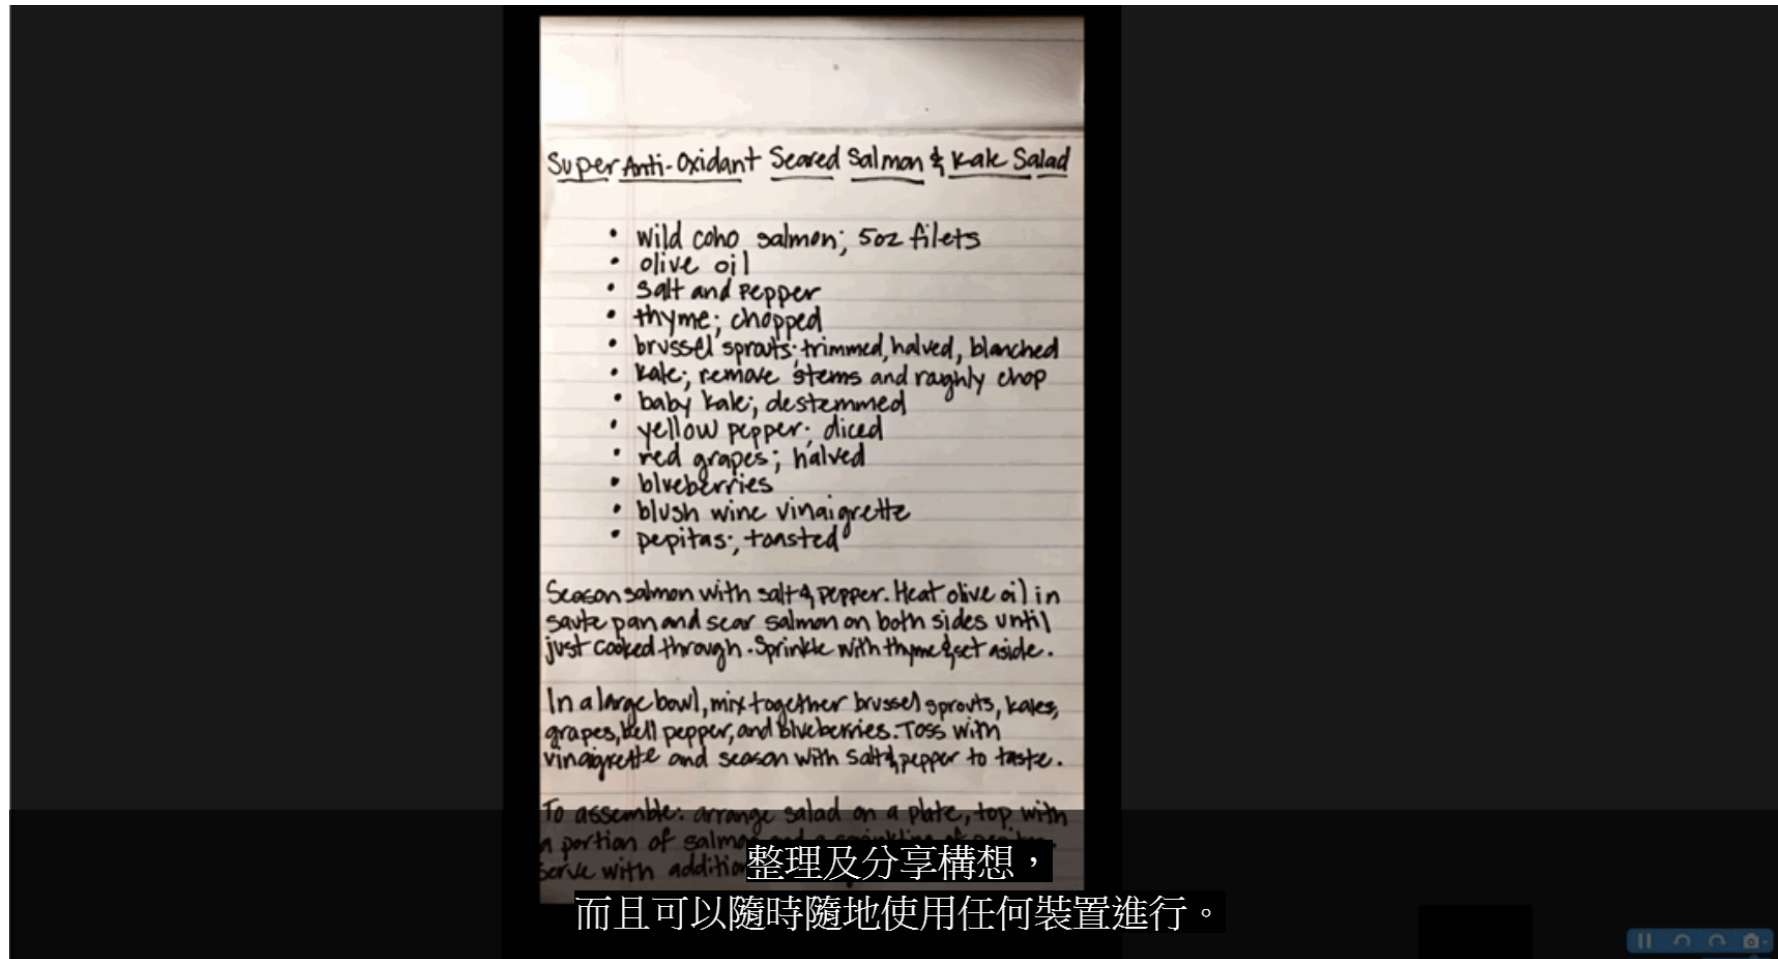 Super Anti-Oxidant Seared Salmon & Kale Salad
• wild coho salmon; 5oz filets
• olive oil
• salt and pepper
• thyme; chopped
• brussel sprouts; trimmed, halved, blanched
• kale; remove stems and roughly chop
• baby kale; destemmed
• yellow pepper; diced
• red grapes; halved
• blueberries
• blush wine vinaigrette
• pepitas; toasted
Season salmon with salt & pepper. Heat olive oil in
saute pan and sear salmon on both sides until
just cooked through. Sprinkle with thyme & set aside.
In a large bowl, mix together brussel sprouts, kales,
grapes, bell pepper, and blueberries. Toss with
vinaigrette and season with salt & pepper to taste.
To assemble: arrange salad on a plate, top with
a portion of
serve with
整理及分享構想，
而且可以隨時隨地使用任何裝置進行。